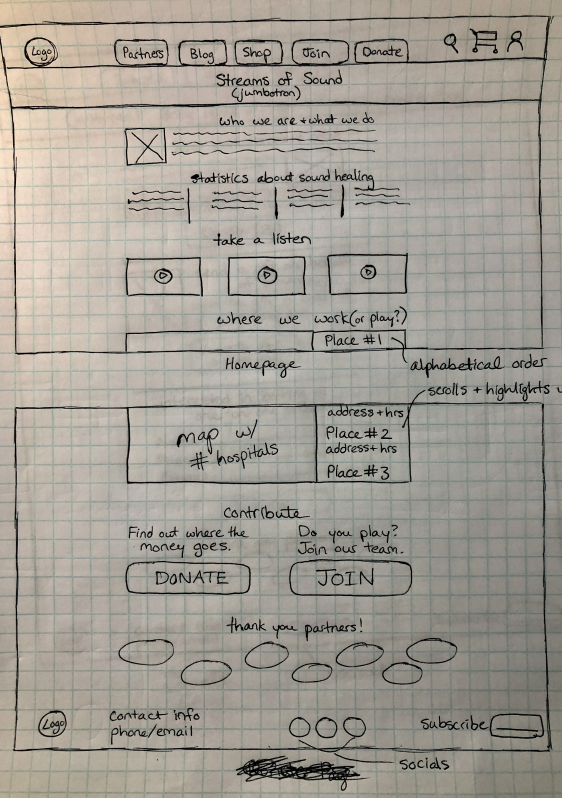 Logo
Partners
Blog
Shop
Join
Donate
Streams of Sound
(jumbotron)
who we are + what we do
statistics about sound healing
take a listen
where we work (or play?)
Place #1
alphabetical order
Homepage
scrolls + highlights
address + hrs
map w/
# hospitals
Place #2
address + hrs
Place #3
Contribute
Find out where the
money goes.
Do you play?
Join our team.
DONATE
JOIN
thank you partners!
Logo
Contact info
phone/email
Subscribe
socials